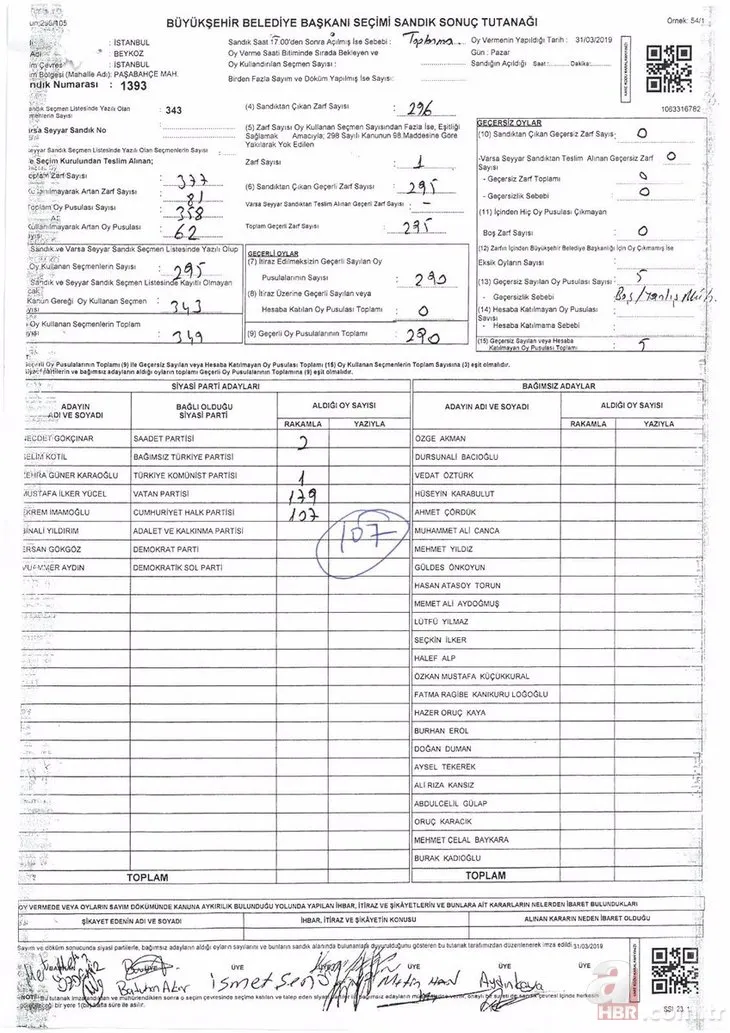 BÜYÜKŞEHİR BELEDİYE BAŞKANI SEÇİMİ SANDIK SONUÇ TUTANAĞI
Örnek: 54/1
: İSTANBUL
: BEYKOZ
: İSTANBUL
Bölgesi (Mahalle Adı): PAŞABAHÇE MAH.
ndık Numarası : 1393
Sandık Saat 17:00'den Sonra Açılmış İse Sebebi :
Oy Verme Saati Bitiminde Sırada Bekleyen ve
Oy Kullandırılan Seçmen Sayısı :
Birden Fazla Sayım ve Döküm Yapılmış İse Sayısı:
Oy Vermenin Yapıldığı Tarih : 31/03/2019
Gün : Pazar
Sandığın Açıldığı Saat: Dakika:
1063316782
ndık Seçmen Listesinde Yazılı Olan : 343
menlerin Sayısı
arsa Seyyar Sandık No
eyyar Sandık Seçmen Listesinde Yazılı Olan Seçmenlerin Sayısı :
e Seçim Kurulundan Teslim Alınan;
oplam Zarf Sayısı : 377
Kullanılmayarak Artan Zarf Sayısı : 81
Toplam Oy Pusulası Sayısı : 358
Kullanılmayarak Artan Oy Pusulası : 62
Sandık ve Varsa Seyyar Sandık Seçmen Listesinde Yazılı Olup
Oy Kullanan Seçmenlerin Sayısı : 295
Sandık ve Seyyar Sandık Seçmen Listesinde Kayıtlı Olmayan
Kanun Gereği Oy Kullanan Seçmen : 343
Oy Kullanan Seçmenlerin Toplam : 349
(4) Sandıktan Çıkan Zarf Sayısı : 296
(5) Zarf Sayısı Oy Kullanan Seçmen Sayısından Fazla İse, Eşitliği
Sağlamak Amacıyla; 298 Sayılı Kanunun 98.Maddesine Göre
Yakılarak Yok Edilen
Zarf Sayısı : 1
(6) Sandıktan Çıkan Geçerli Zarf Sayısı : 295
Varsa Seyyar Sandıktan Teslim Alınan Geçerli Zarf Sayısı : -
Toplam Geçerli Zarf Sayısı : 295
GEÇERLİ OYLAR
(7) İtiraz Edilmeksizin Geçerli Sayılan Oy
Pusulalarının Sayısı : 290
(8) İtiraz Üzerine Geçerli Sayılan veya
Hesaba Katılan Oy Pusulası Toplamı : 0
(9) Geçerli Oy Pusulalarının Toplamı : 290
GEÇERSİZ OYLAR
(10) Sandıktan Çıkan Geçersiz Zarf Sayısı : 0
-Varsa Seyyar Sandıktan Teslim Alınan Geçersiz Zarf Sayısı : 0
- Geçersiz Zarf Toplamı : 0
- Geçersizlik Sebebi : 0
(11) İçinden Hiç Oy Pusulası Çıkmayan
Boş Zarf Sayısı : 0
(12) Zarfın İçinden Büyükşehir Belediye Başkanlığı İçin Oy Çıkmamış İse
Eksik Oyların Sayısı :
(13) Geçersiz Sayılan Oy Pusulası Sayısı : 5
- Geçersizlik Sebebi :
(14) Hesaba Katılmayan Oy Pusulası
Sayısı
- Hesaba Katılmama Sebebi :
(15) Geçersiz Sayılan veya Hesaba
Katılmayan Oy Pusulası Toplamı : 5
Geçerli Oy Pusulalarının Toplamı (9) ile Geçersiz Sayılan veya Hesaba Katılmayan Oy Pusulası Toplamı (15) Oy Kullanan Seçmenlerin Toplam Sayısına (3) eşit olmalıdır.
Siyasi partilerin ve bağımsız adayların aldığı oyların toplamı Geçerli Oy Pusulalarının Toplamına (9) eşit olmalıdır.
SİYASİ PARTİ ADAYLARI
BAĞIMSIZ ADAYLAR
ADAYIN ADI VE SOYADI
BAĞLI OLDUĞU SİYASİ PARTİ
ALDIĞI OY SAYISI
RAKAMLA YAZIYLA
ADAYIN ADI VE SOYADI
ALDIĞI OY SAYISI
RAKAMLA YAZIYLA
NECDET GÖKÇINAR SAADET PARTİSİ 2
SELİM KOTİL BAĞIMSIZ TÜRKİYE PARTİSİ
ZEHRA GÜNER KARAOĞLU TÜRKİYE KOMÜNİST PARTİSİ 1
MUSTAFA İLKER YÜCEL VATAN PARTİSİ 179
EKREM İMAMOĞLU CUMHURİYET HALK PARTİSİ 107
BİNALİ YILDIRIM ADALET VE KALKINMA PARTİSİ 107
ERSAN GÖKGÖZ DEMOKRAT PARTİ
MUAMMER AYDIN DEMOKRATİK SOL PARTİ
ÖZGE AKMAN
DURSUNALİ BACIOĞLU
VEDAT ÖZTÜRK
HÜSEYİN KARABULUT
AHMET ÇÖRDÜK
MUHAMMET ALİ CANCA
MEHMET YILDIZ
GÜLDES ÖNKOYUN
HASAN ATASOY TORUN
MEMET ALİ AYDOĞMUŞ
LÜTFÜ YILMAZ
SEÇKİN İLKER
HALEF ALP
ÖZKAN MUSTAFA KÜÇÜKKURAL
FATMA RAGİBE KANIKURU LOĞOĞLU
HAZER ORUÇ KAYA
BURHAN EROL
DOĞAN DUMAN
AYSEL TEKEREK
ALİ RIZA KANSIZ
ABDULCELİL GÜLAP
ORUÇ KARACIK
MEHMET CELAL BAYKARA
BURAK KADIOĞLU
TOPLAM
TOPLAM
OY VERMEDE VEYA OYLARIN SAYIM DÖKÜMÜNDE KANUNA AYKIRILIK BULUNDUĞU YOLUNDA YAPILAN İHBAR, İTİRAZ VE ŞİKAYETLERİN VE BUNLARA AİT KARARLARIN NELERDEN İBARET BULUNDUKLARI
ŞİKAYET EDENİN ADI VE SOYADI
İHBAR, İTİRAZ VE ŞİKAYETİN KONUSU
ALINAN KARARIN NEDEN İBARET OLDUĞU
Sayım ve döküm sonucunda siyasi partilerle, bağımsız adayların aldığı oyların sayılarını ve bunların sandık alanında bulunanlara duyurulduğunu gösteren bu tutanak tarafımızdan düzenlenerek imza edildi.31/03/2019
ÜYE ÜYE ÜYE ÜYE
Batuhan Akır
ismet Şen
Metin HAN
Aydınkaya
a HBR.com.tr